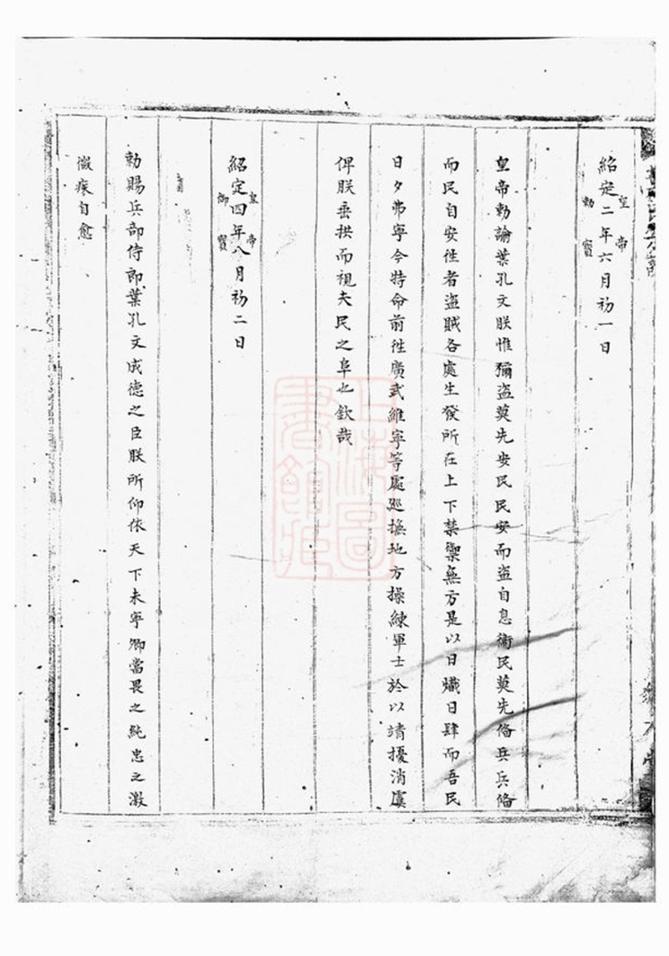 紹定二年六月初一日
皇帝
勅寳
皇帝勅諭葉孔文朕惟彌盗莫先安民民安而盗自息衛民莫先俻兵兵俻
而民自安徃者盗賊各處生發所在上下禁禦無方是以日熾日肆而吾民
日夕弗寧今特命前徃廣武維寧等處廵撫地方操練軍士於以靖擾消虞
俾朕垂拱而視夫民之阜也欽哉
紹定四年八月初二日
皇帝
御寳
勅賜兵部侍郎葉孔文成德之臣朕所仰依天下未寧卿當畏之純忠之激
微疾自愈
上海圖書館藏